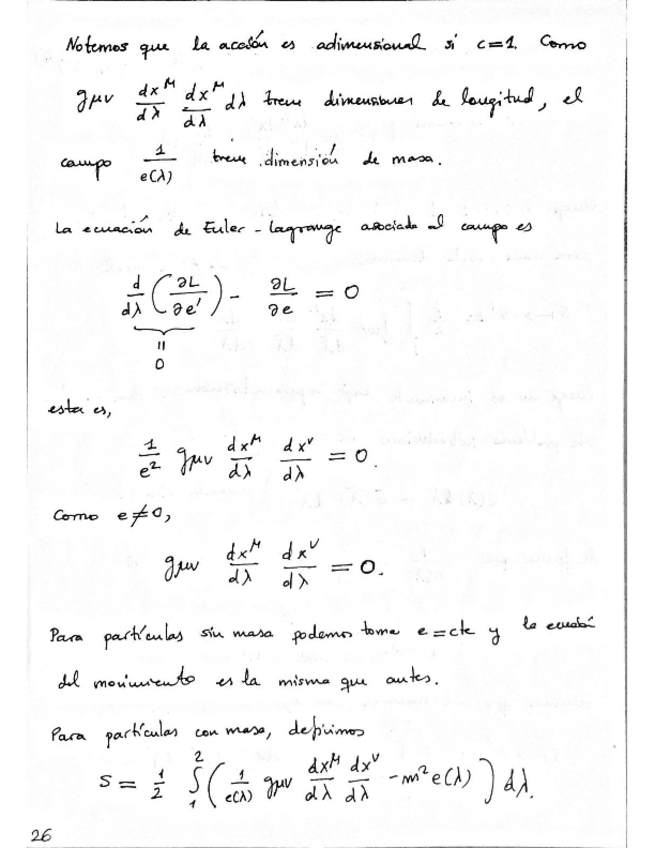 Notemos que la acción es adimensional si c=1. Como
gμν dx^μ/dλ dx^μ/dλ dλ tiene dimensiones de longitud, el
campo 1/e(λ) tiene dimensión de masa.
La ecuación de Euler-Lagrange asociada al campo es
d/dλ (∂L/∂e') - ∂L/∂e = 0
"
0
esta es,
1/e² gμν dx^μ/dλ dx^ν/dλ = 0.
Como e≠0,
gμν dx^μ/dλ dx^ν/dλ = 0.
Para partículas sin masa podemos toma e=cte y la ecuación
del movimiento es la misma que antes.
Para partículas con masa, definimos
S = 1/2 ∫₁² (1/e(λ) gμν dx^μ/dλ dx^ν/dλ - m² e(λ)) dλ.
26